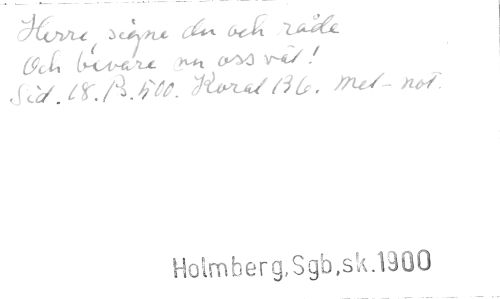 Herre, signe du och råde
Och bevare nu oss väl!
Sid. 18. B. 500. Koral 136. mel-not.
Holmberg,Sgb,sk.1900